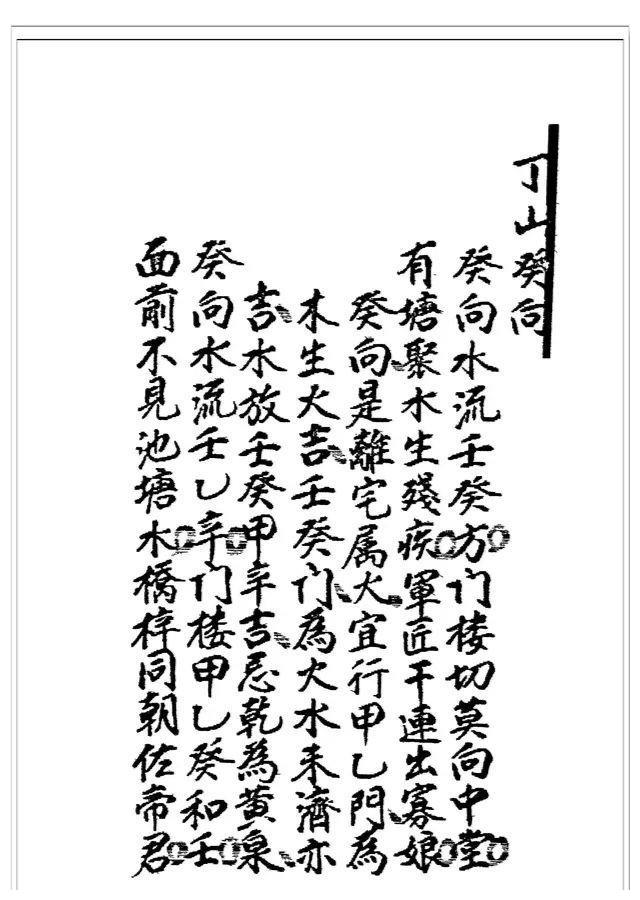 丁山癸向
癸向水流壬癸方門楼切莫向中堂
有塘聚水生殘疾軍匠干連出寡娘
癸向是離宅属火宜行甲乙門為
木生火吉壬癸门為火水未濟亦
吉水放壬癸甲辛吉忌乾為黄泉
癸向水流壬乙辛门楼甲乙癸和壬
面前不見池塘水橋梓同朝佐帝君